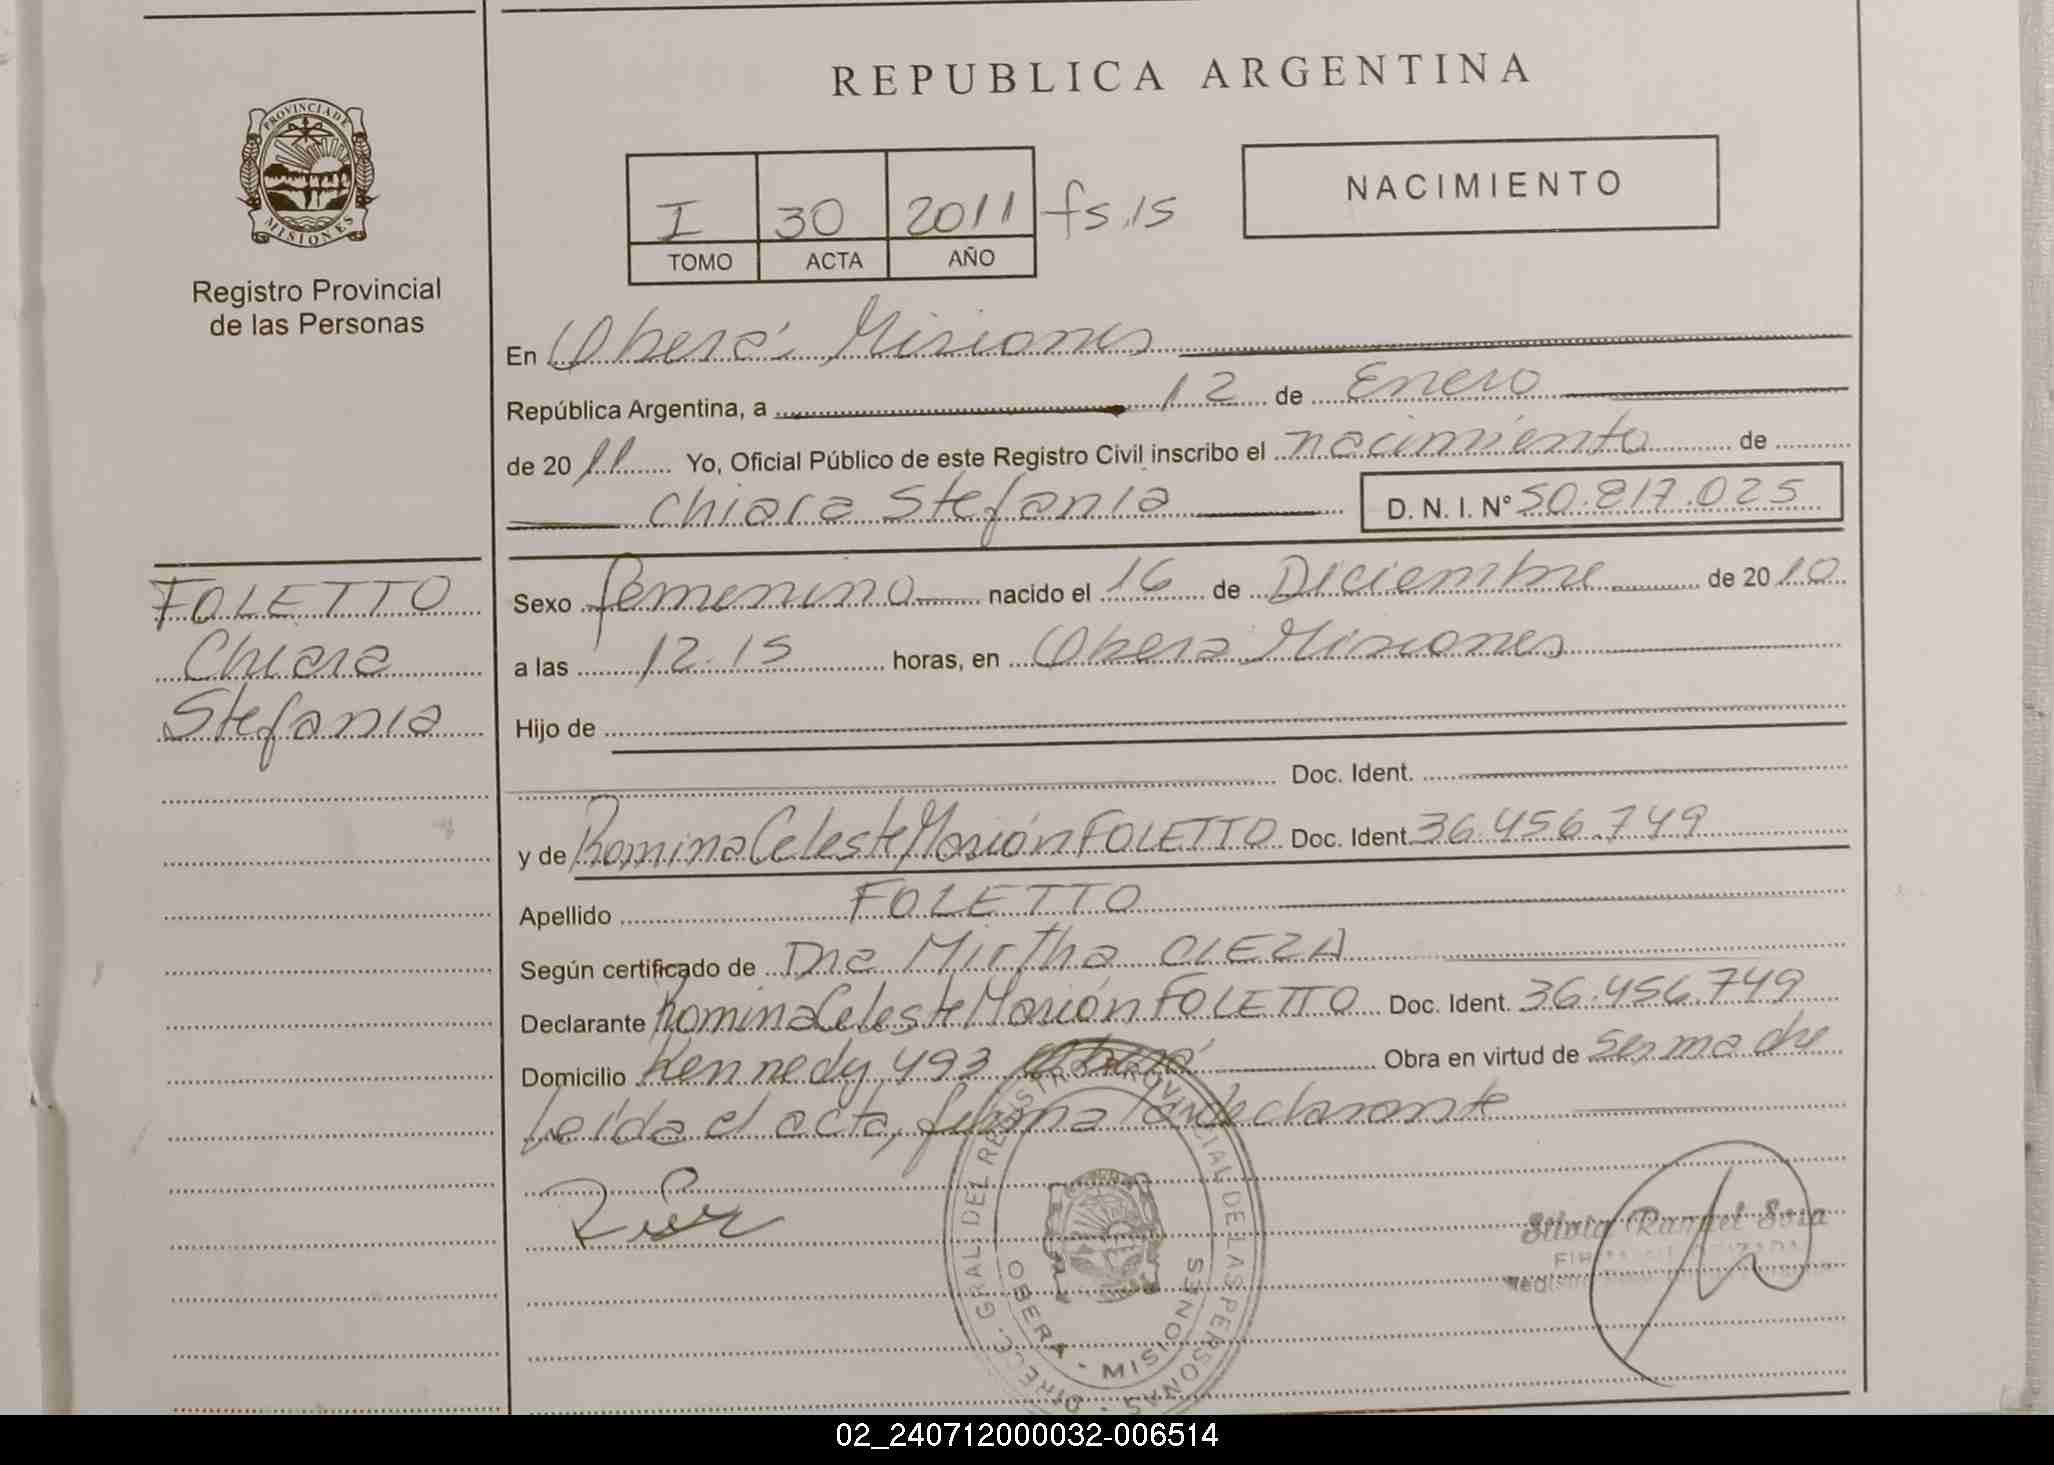 REPUBLICA ARGENTINA
PROVINCIA DE
MISIONES
Registro Provincial
de las Personas
I 30 2011 fs.15
TOMO ACTA AÑO
NACIMIENTO
En Oberá Misiones
República Argentina, a 12 de Enero
de 20 11 Yo, Oficial Público de este Registro Civil inscribo el nacimiento de
Chiara Stefania D. N. I. N° 50.817.025
FOLETTO
Chiara
Stefania
Sexo femenino nacido el 16 de Diciembre de 20 10
a las 12.15 horas, en Oberá Misiones
Hijo de
Doc. Ident.
y de Romina Celeste Marión FOLETTO Doc. Ident. 36.456.749
Apellido FOLETTO
Según certificado de Dra Mirtha
Declarante Romina Celeste Marión FOLETTO Doc. Ident. 36.456.749
Domicilio Kennedy 493 Oberá Obra en virtud de ser madre
Leída el acta, firma la declarante
DIRECC. GRAL DEL REGISTRO PROVINCIAL DE LAS PERSONAS
OBERA - MISIONES
Silvia Raquel
02_240712000032-006514